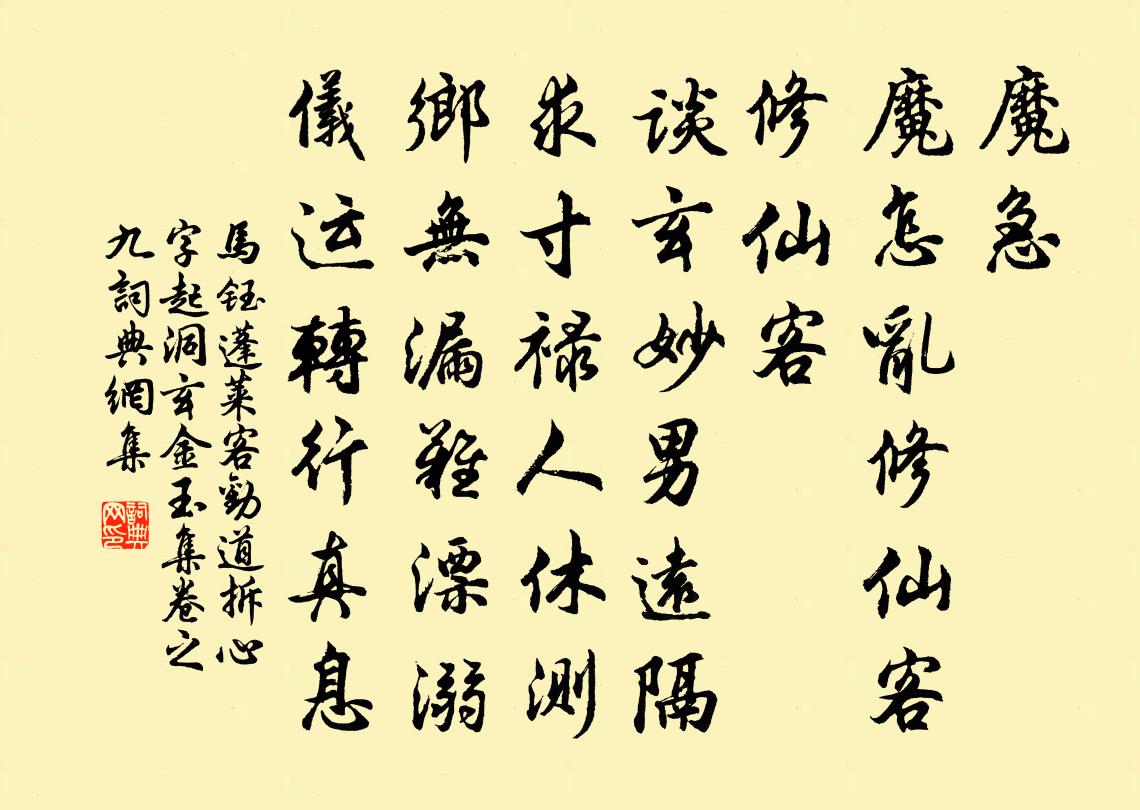 魔急
魔怎亂修仙客
修仙客
談玄妙男遠隔
求寸祿人休測
鄉無漏難漂溺
儀运轉行真息
馬鈺蓬萊客勸道拆心
字起洞玄金玉集卷之
九詞典網集
詞典网印